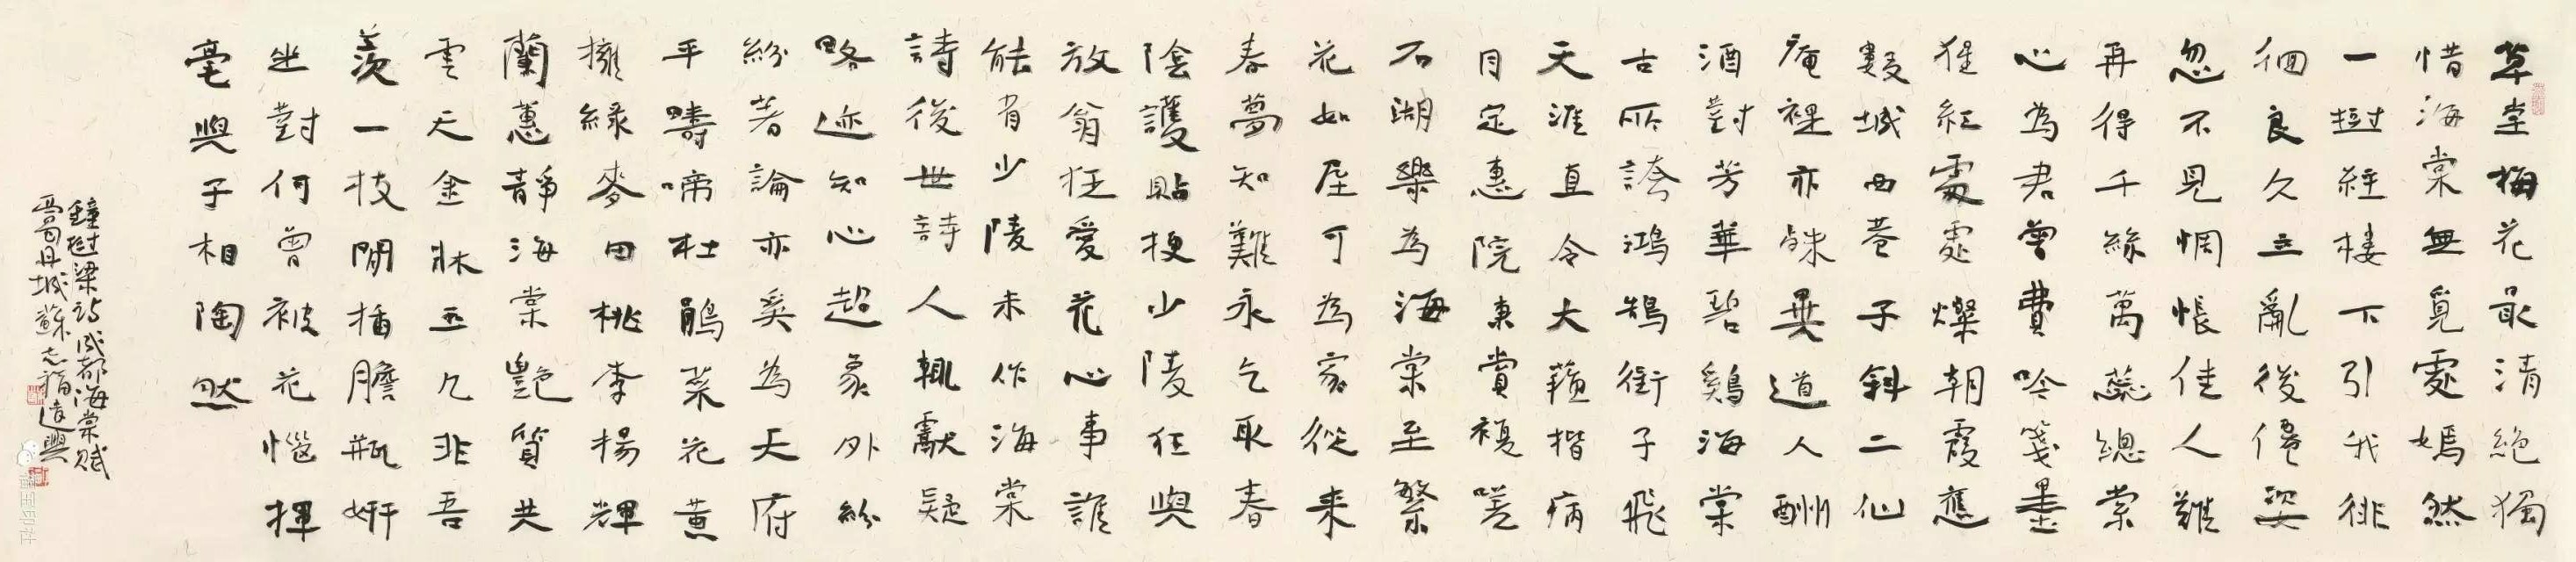 草堂梅花最清絕獨
惜海棠無覓處嫣然
一樹經樓下引我徘
徊良久立亂後倦姿
忽不見惆悵佳人難
再得千絲萬蕊總棠
心為君曾費吟箋墨
猩紅處處燦朝霞應
數城西巷子斜二仙
庵裡亦殊異道人酬
酒對芳華碧鷄海棠
古所誇鴻鵠銜子飛
天涯直令大蘇揩病
目定惠院東賞複嗟
石湖樂為海棠至繁
花如屋可為家從來
春夢知難永乞取春
陰護貼梗少陵狂與
放翁狂愛花心事誰
能肯少陵未作海棠
詩後世詩人輒獻疑
略迹知心超象外紛
紛著論亦奚為天府
平疇啼杜鵑菜花黃
擁綠麥田桃李揚輝
蘭蕙靜海棠艷質共
雲天金牀玉几非吾
羨一枝閒插膽瓶妍
坐對何曾被花惱揮
毫與子相陶然
鐘樹梁詩成都海棠賦
丹城蘇志福遣興